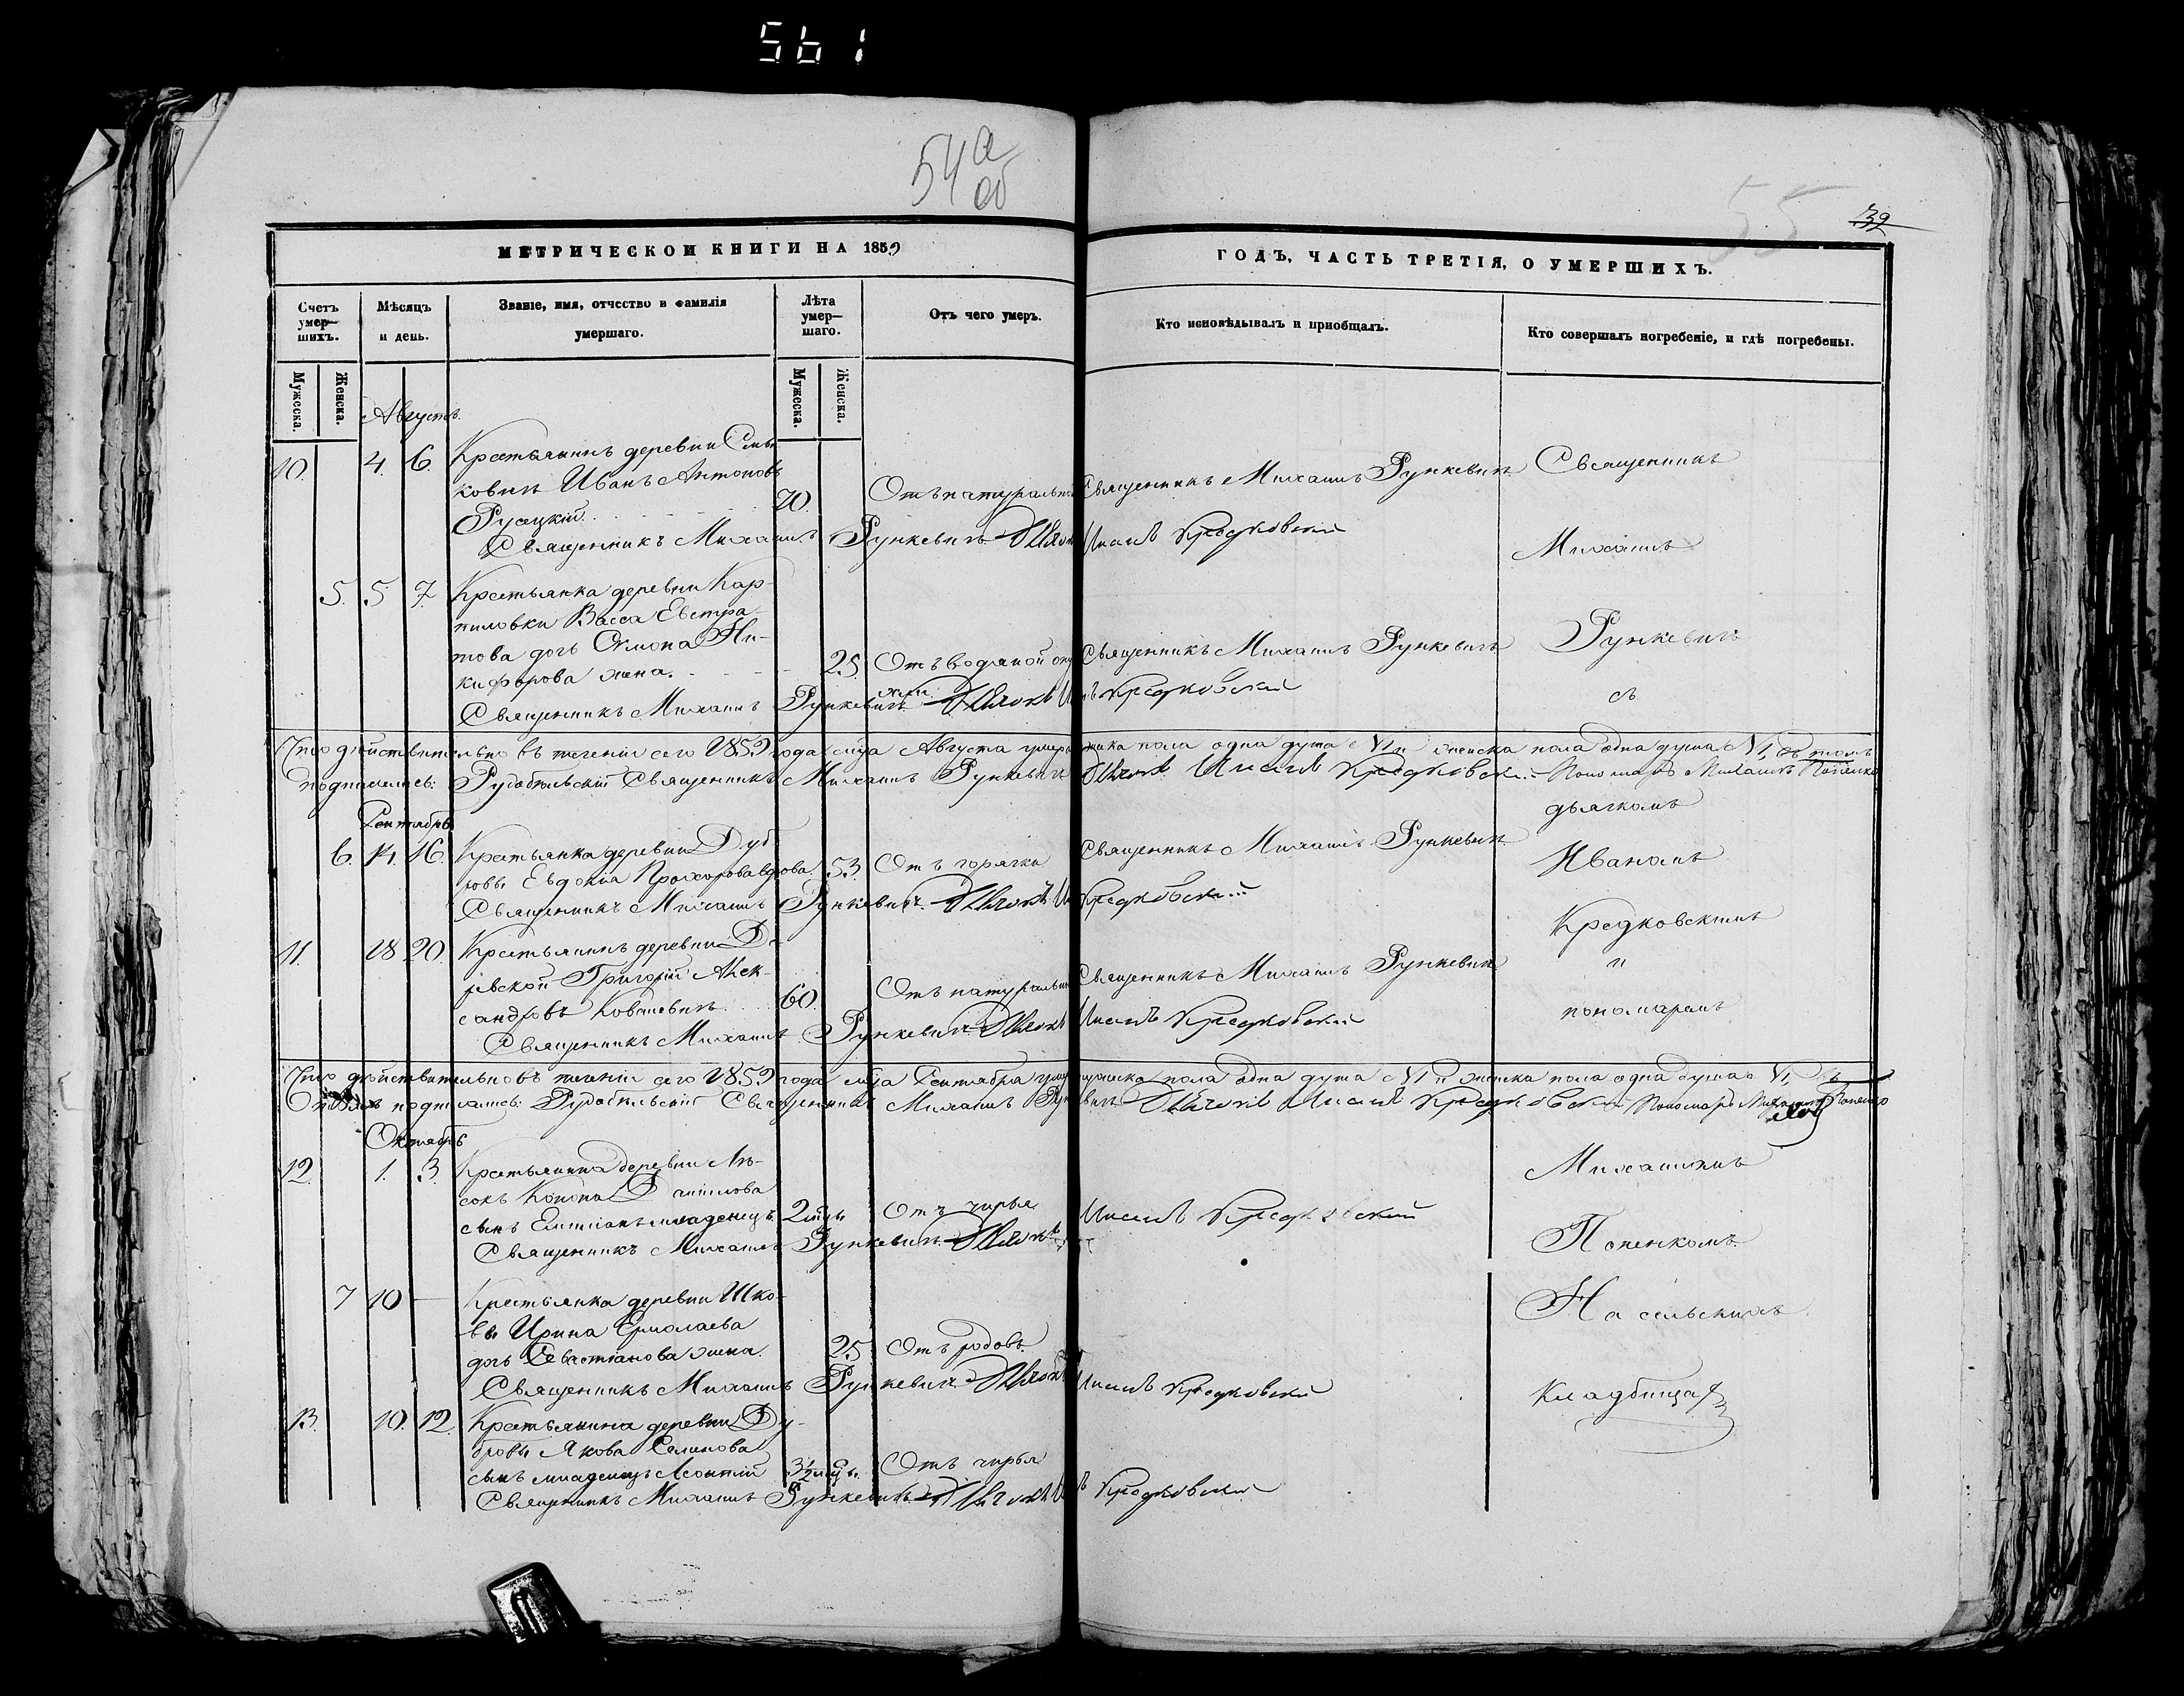 561
54 а
об
55
39
МЕТРИЧЕСКОЙ КНИГИ НА 1859
ГОДЪ, ЧАСТЬ ТРЕТІЯ, О УМЕРШИХЪ.
Счетъ умер-шихъ.
Мѣсяцъ и день.
Званіе, имя, отчество и фамилія умершаго.
Лѣта умер-шаго.
Отъ чего умеръ.
Кто исповѣдывалъ и пріобщалъ.
Кто совершалъ погребеніе, и гдѣ погребены.
Мужеска.
Женска.
Мужеска.
Женска.
Августъ.
10. 4. 6. Крестьянинъ деревни
ковичъ Иванъ Антоновъ
Русецкій. 70. Отъ натуральной Священникъ Михаилъ Рункевичъ
Священникъ Михаилъ Рункевичъ Дьячокъ Иоаннъ Кредковскій
5. 5 7. Крестьянка деревни Кар-
пиловки Васса Евстра-
това дочь Симона Ни-
кифорова жена. 25. Отъ водяной опу Священникъ Михаилъ Рункевичъ
Священникъ Михаилъ Рункевичъ Дьячокъ Кредковскій
Что дѣйствительно въ теченіи сего 1859 года м-ца Августа умерло мужеска пола одна душа №1 и женска пола одна душа №1, въ томъ
подписались: Рудобѣльскій Священникъ Михаилъ Рункевичъ Дьячокъ Иоаннъ Кредковскій Пономарь Михаилъ Попенко
Сентябрь
6. 14. 16. Крестьянка деревни Дуб
ровы Евдокія Прохорова вдова. 53. Отъ горячки Священникъ Михаилъ Рункевичъ
Священникъ Михаилъ Рункевичъ. Дьячокъ Кредковскій
11. 18 20. Крестьянинъ деревни
Григорій Алек-
сандровъ Ковалевичъ 60. Отъ натуральной Священникъ Михаилъ Рункевичъ
Священникъ Михаилъ Рункевичъ Дьячокъ Иоаннъ Кредковскій
Что дѣйствительно въ теченіи сего 1859 года м-ца Сентября умерло мужеска пола одна душа №1 и женска пола одна душа №1, въ
подписались: Рудобѣльскій Священникъ Михаилъ Рункевичъ Дьячокъ Иоаннъ Кредковскій Пономарь Михаилъ Попенко
Октябрь
12. 1. 3. Крестьянина деревни Лѣ-
сокъ Конона Даніилова
сынъ Емиліанъ младенецъ. 2 м-цы Отъ чирья
Священникъ Михаилъ Рункевичъ. Дьячокъ Иоаннъ Кредковскій
7 10 — Крестьянка деревни Шко-
вы Ирина Ермолаева
дочь Севастіанова жена. 25. Отъ родовъ.
Священникъ Михаилъ Рункевичъ Дьячокъ Иоаннъ Кредковскій
13. 10. 12. Крестьянина деревни Ду-
бровы Якова
сынъ младенецъ Леонтій 3½ м-цы. Отъ чирья
Священникъ Михаилъ Рункевичъ Дьячокъ Кредковскій
Священникъ
Михаилъ
Рункевичъ
съ
дьячкомъ
Иваномъ
Кредковскимъ
и
пономаремъ
Михаиломъ
Попенкомъ.
На сельскихъ
кладбищахъ